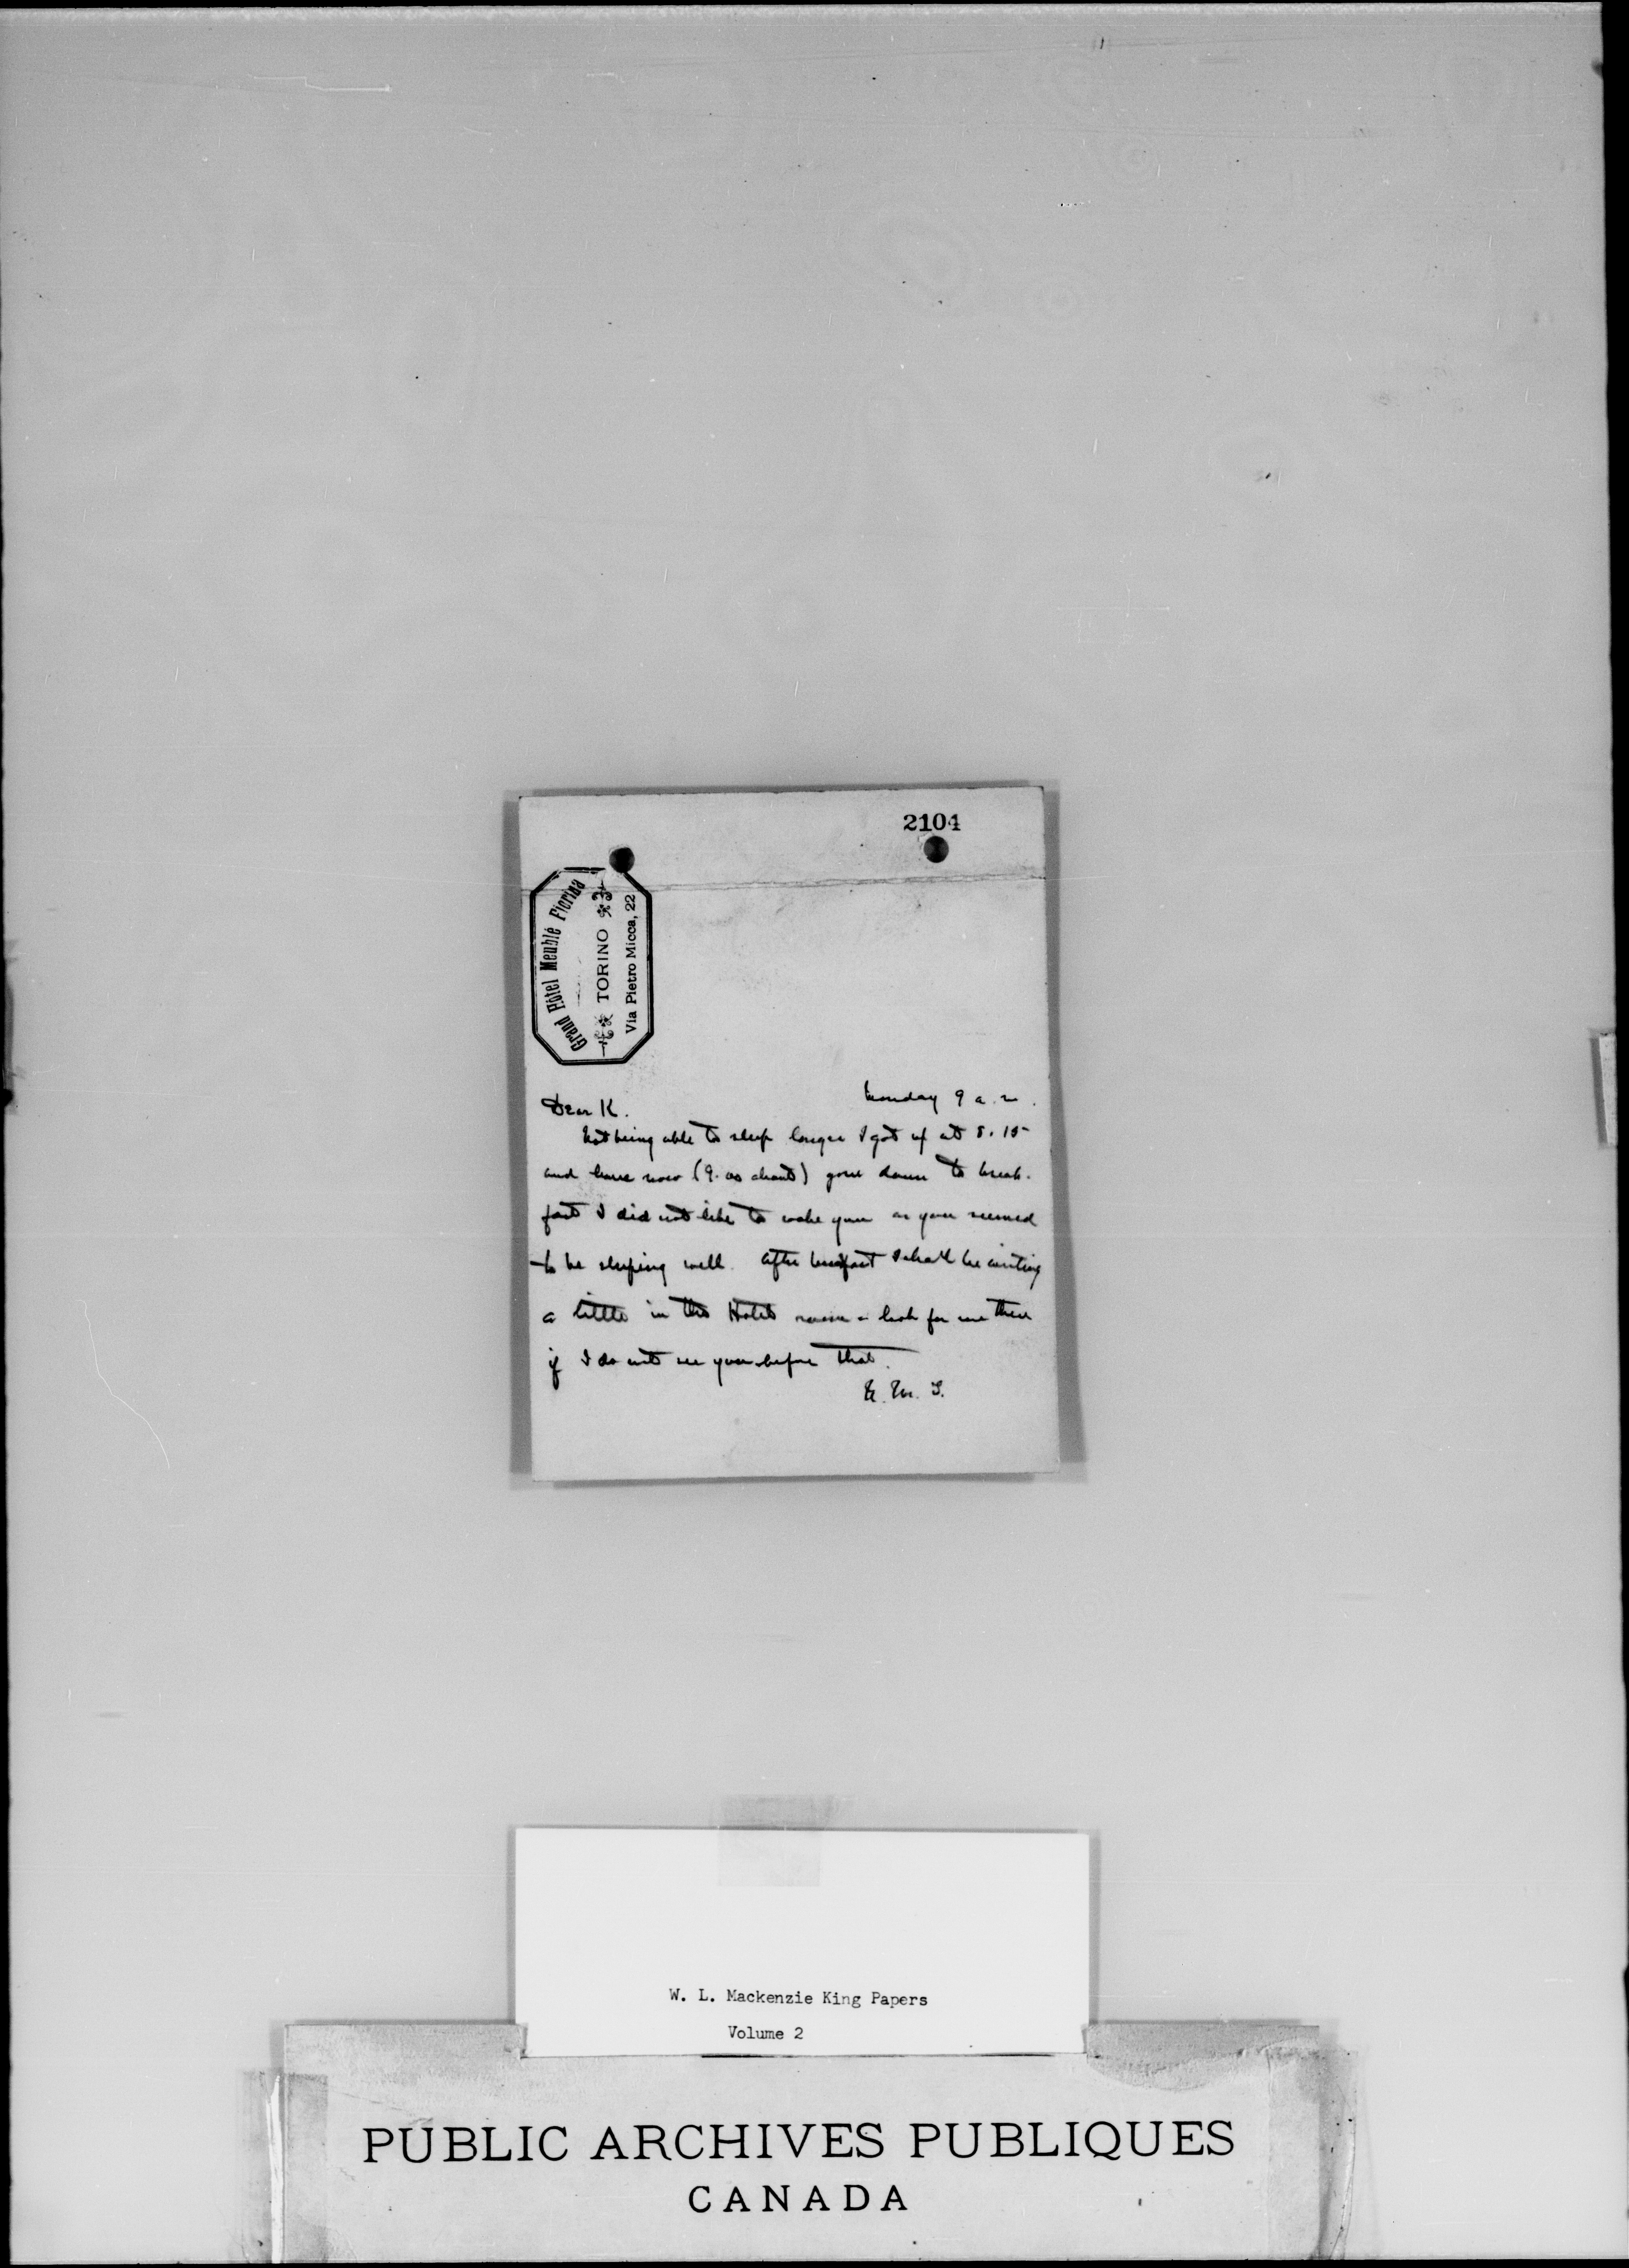 2104
Grand Hôtel Meublé Fiorina
TORINO
Via Pietro Micca, 22
Monday 9 a.m.
Dear K.
Not being able to sleep longer I got up at 8.15
and have now (9.00 about) gone down to break-
fast I did not like to wake you as you seemed
to be sleeping well. After breakfast I shall be writing
a little in the Hotel room - look for me there
if I do not see you before that.
E. M. S.
W. L. Mackenzie King Papers
Volume 2
PUBLIC ARCHIVES PUBLIQUES
CANADA